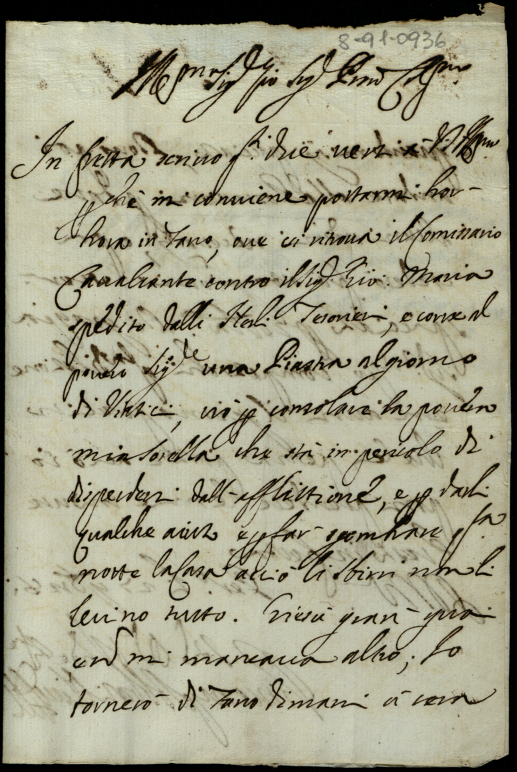 8-91-0936
Sig.r Sig.r
In fretta scrivo due versi a V.
che mi conviene portarmi hor-
hora in Fano, ove si ritrova il Comissario
Cavalcante contro il Sig. Gio. Maria
spedito dalli Tesorieri, e corre al
povero Sig.re una Piastra al giorno
di vio p consolare la povera
mia sorella che stà in pericolo di
disperdersi dall'afflittione, e p darli
qualche aiuto e p far sgombrare
notte la Casa acciò li sbirri non li
levino tutto. gran guai
mi mancava altro; Io
tornerò di Fano dimani à sera